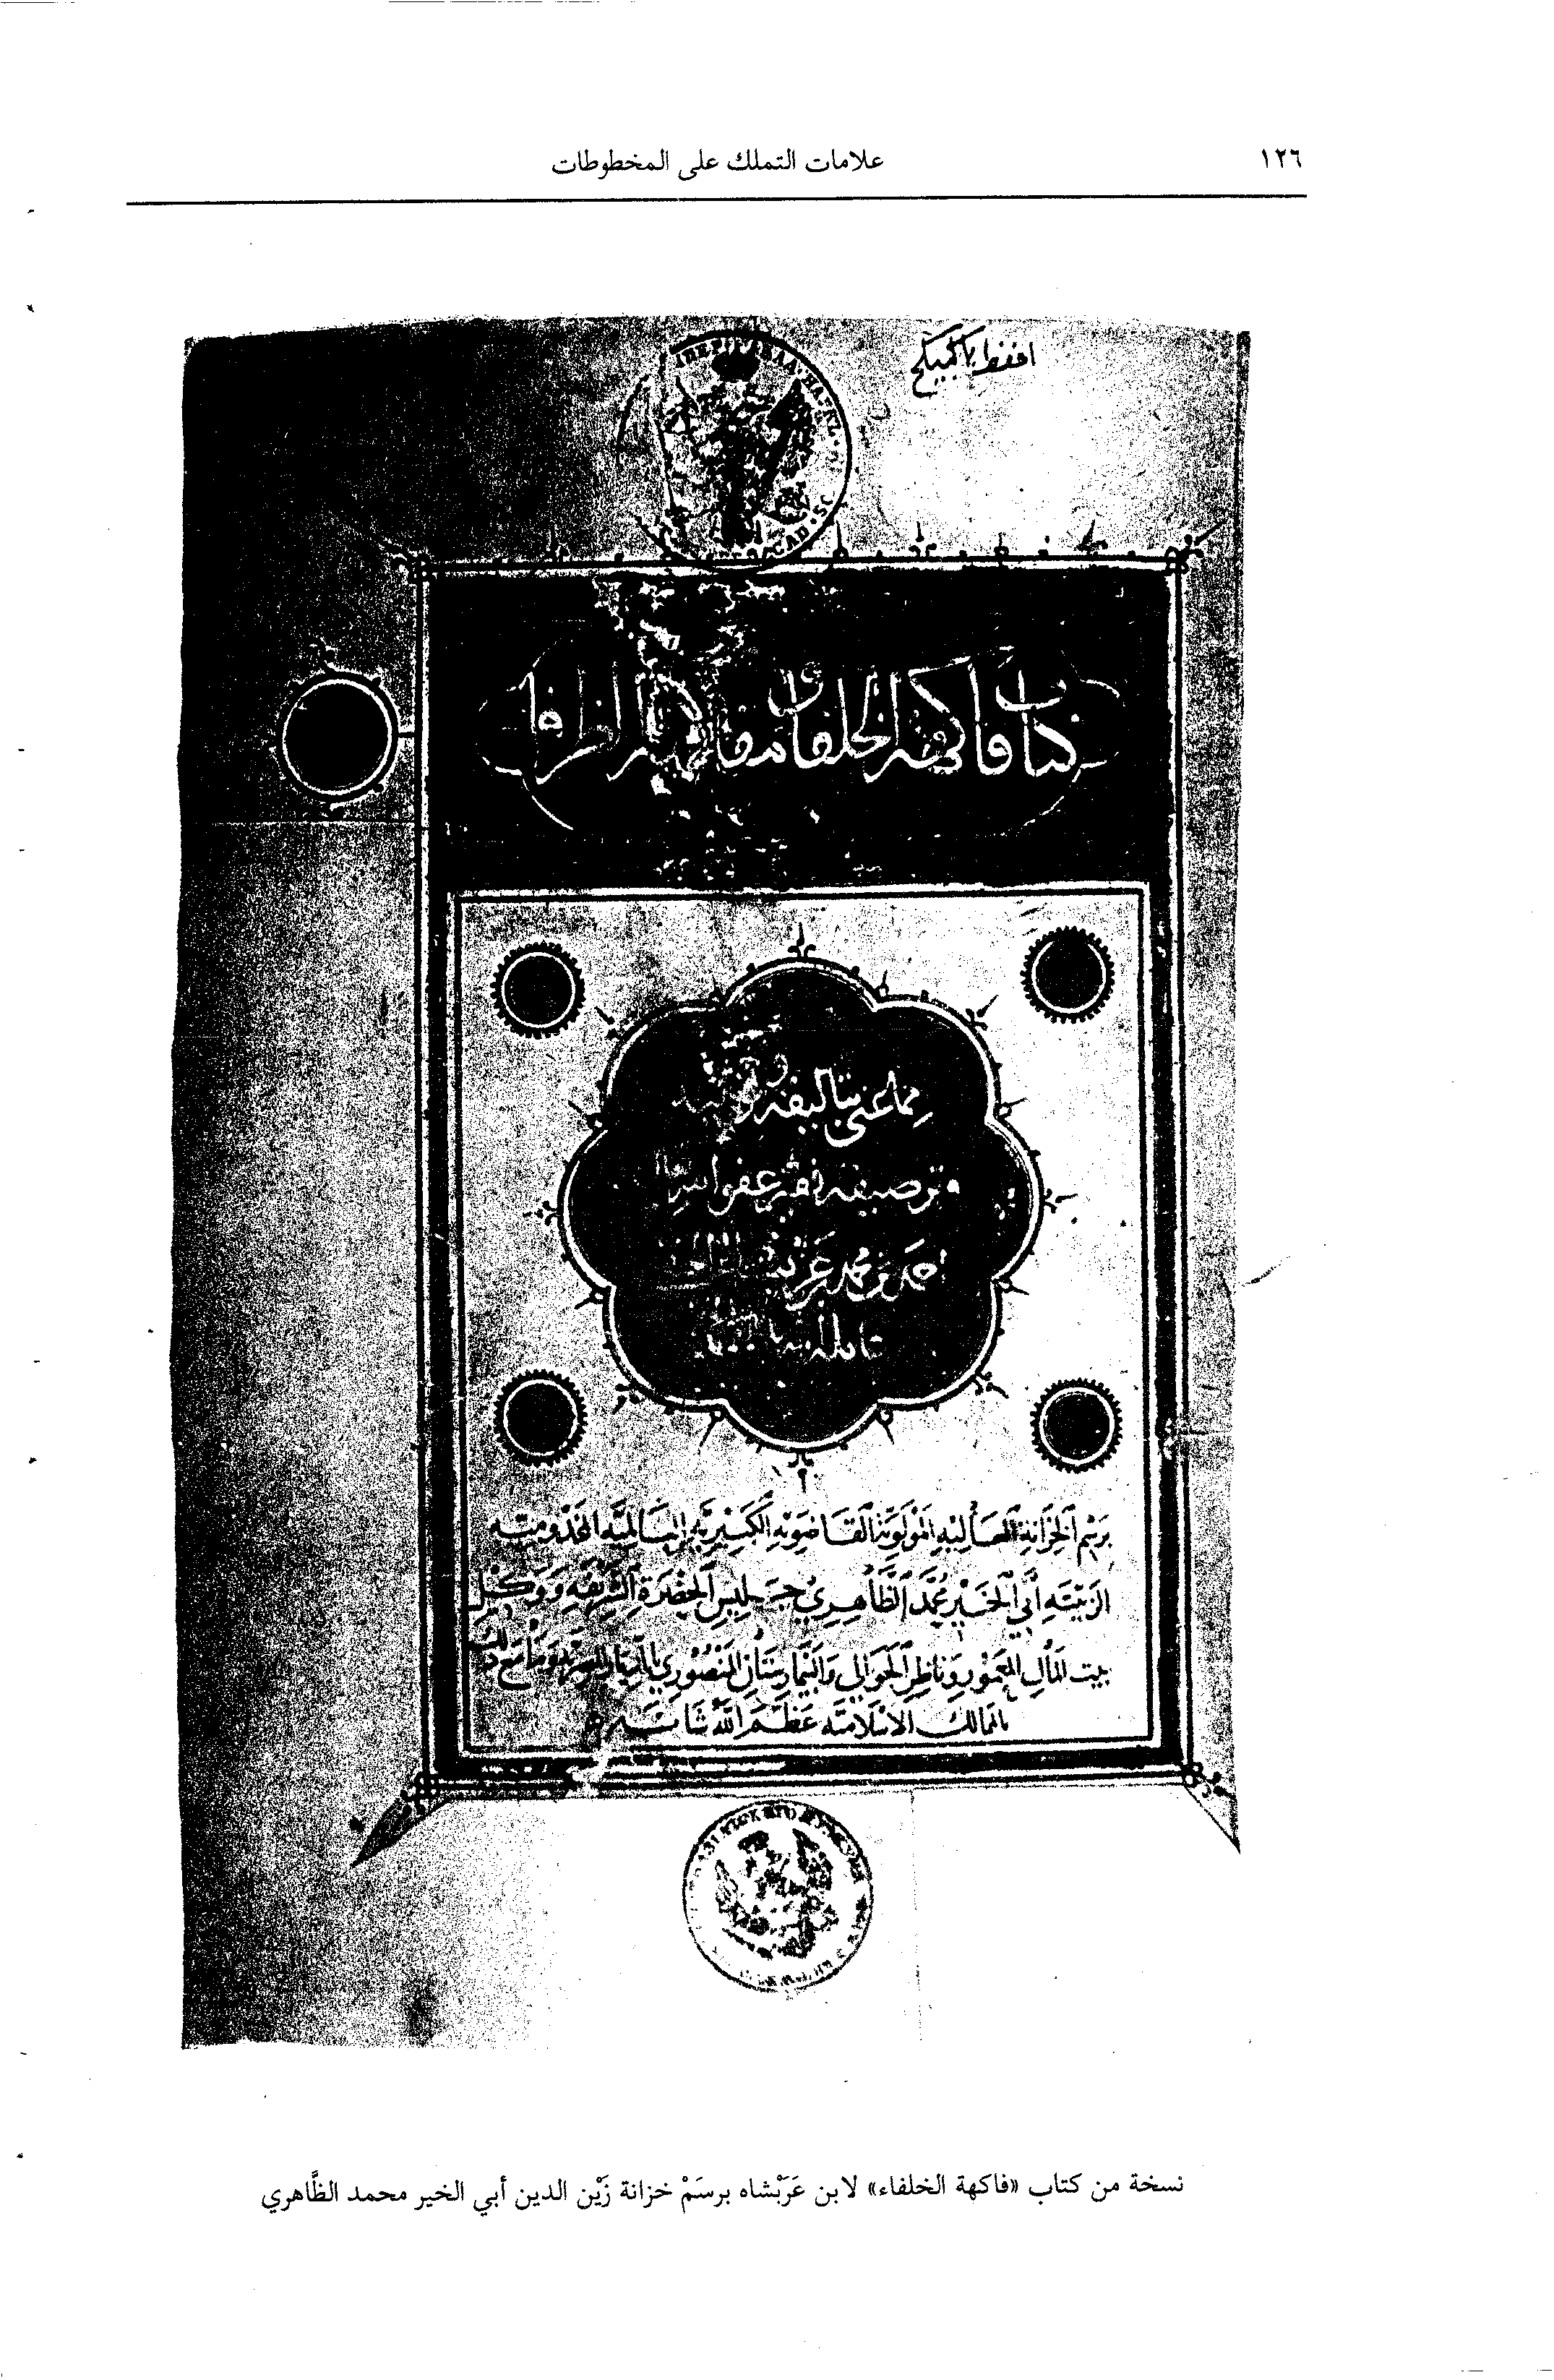 ١٢٦
علامات التملك على المخطوطات
كتاب فاكهة الخلفا ومفاكهة الظرفا
مما عني بتاليفه
وترصيفه فقير عفو الله
احمد بن محمد عربشاه
برسم الخزانة العالية المولوية القاضوية الكبيرية العالمية المخدومية
الزينية أبي الخير محمد الظاهري جليس الحضرة الشريفة ووكيل
بيت المال المعمور وناظر الجوالي والبيمارستان المنصوري بالديار المصرية وما مع ذلك
بالممالك الاسلامية عظم الله شانه
نسخة من كتاب «فاكهة الخلفاء» لابن عَرَبْشاه برسَمْ خزانة زَيْن الدين أبي الخير محمد الظَّاهري